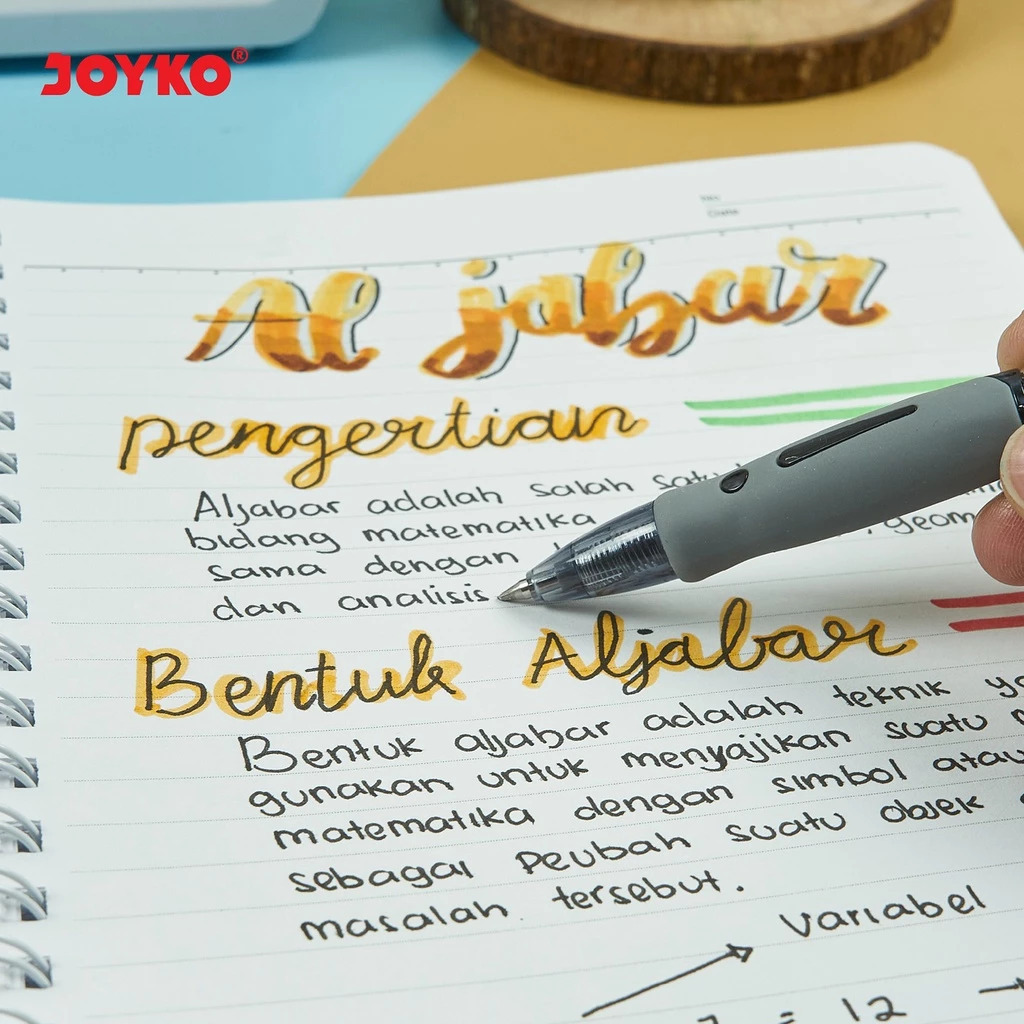 JOYKO®
No
Date
Al jabar
pengertian
Aljabar adalah salah satu
bidang matematika
sama dengan , geom
dan analisis
Bentuk Aljabar
Bentuk aljabar adalah teknik
gunakan untuk menyajikan suatu
matematika dengan simbol atau
sebagai peubah suatu objek
masalah tersebut.
Variabel
= 12